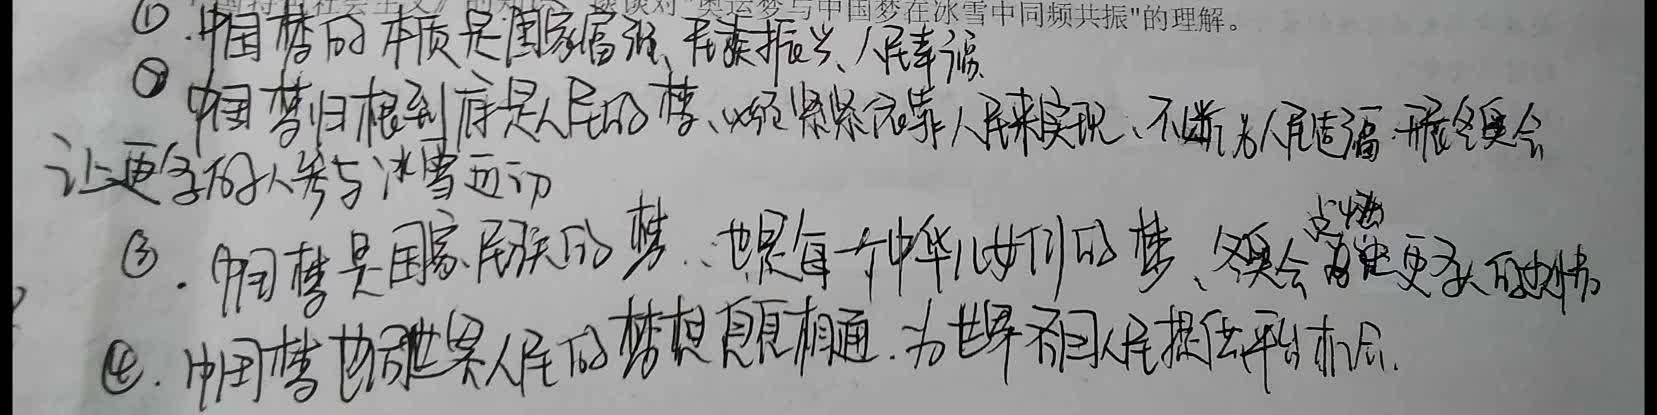 中国特色社会主义》的知识，谈谈对"奥运梦与中国梦在冰雪中同频共振"的理解。
① .中国梦的本质是国家富强、民族振兴、人民幸福
② 中国梦归根到底是人民的梦、必须紧紧依靠人民来实现、不断为人民造福.开展冬奥会
让更多的人参与冰雪运动
点燃
③ .中国梦是国家、民族的梦.也是每一个中华儿女们的梦、冬奥会更多人的热情
④ .中国梦也同世界人民的梦想息息相通.为世界各国人民提供平台机会.